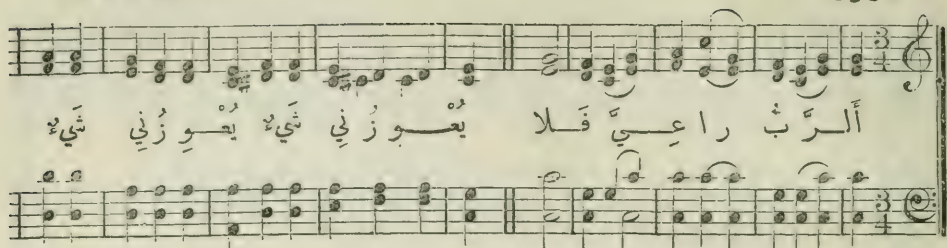 أَلـرَّبُّ را عِـيَّ فَـلا يُعْـوِزُني شَيءٌ يُعْـوِزُنِي شَيءٌ
3 4
3 4